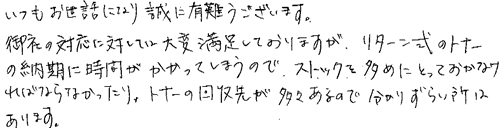 いつもお世話になり誠に有難うございます。
御社の対応に対しては大変満足しておりますが、リターン式のトナー
の納期に時間がかかってしまうので、ストックを多めにとっておかなけ
ればならなかったり、トナーの回収先が多々あるので分かりずらい所は
あります。